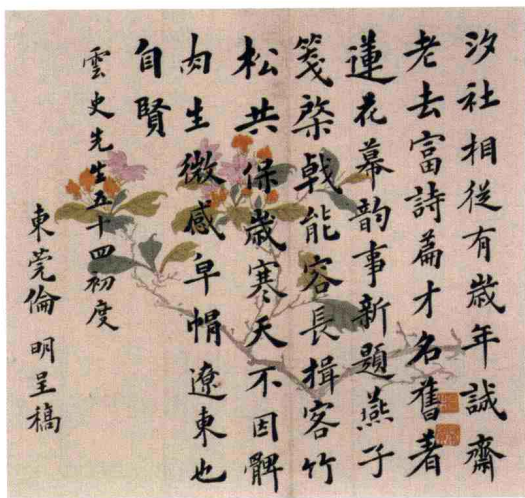 汐社相從有歲年誠齋
老去富詩篇才名舊著
蓮花幕韵事新題燕子
箋棨戟能容長揖客竹
松共保歲寒天不因髀
肉生微感皁帽遼東也
自賢
雲史先生五十四初度
東莞倫明呈稿